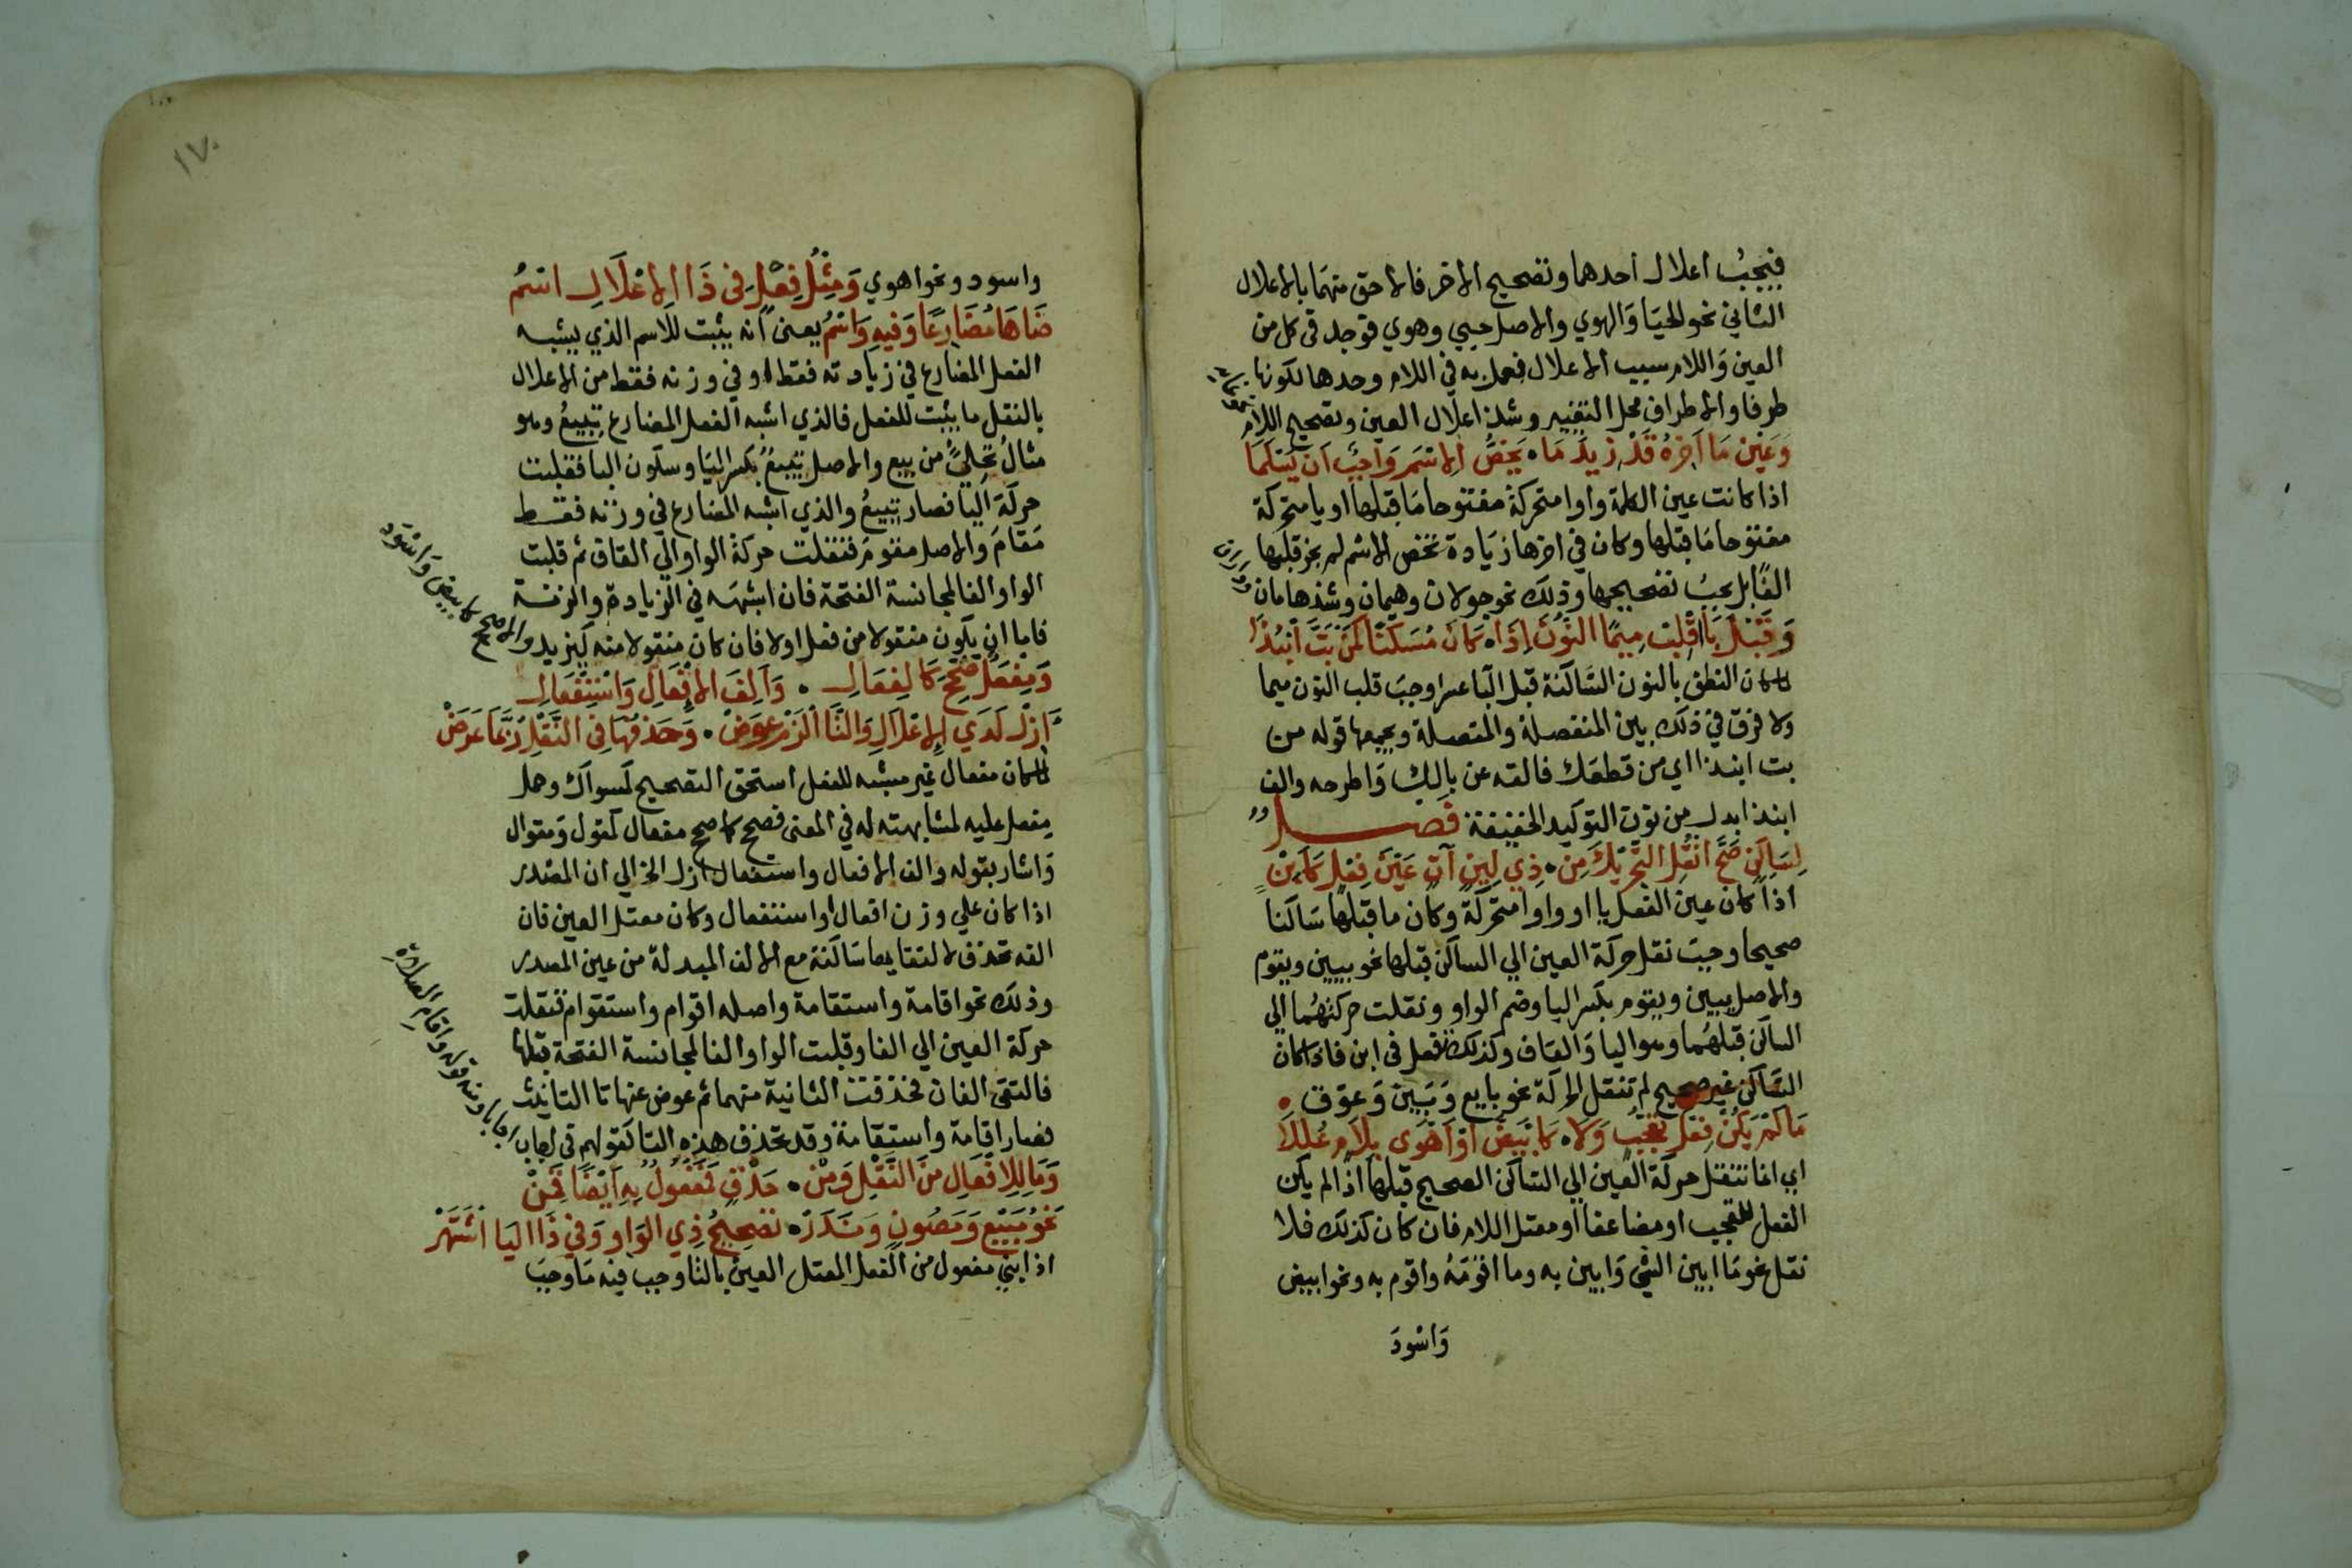 فيجب اعلال احدهما وتصحيح الاخر فالاحق منهما بالاعلال
الثاني نحو الحيا والهوي والاصل حيي وهوي فوجد في كل من
العين واللام سبب الاعلال فعمل به في اللام وحدها لكونها
طرفا والاطراف محل التغيير وشذ اعلال العين وتصحيح اللام
وَعَين مَا آخِرهُ قَدْ زِيدَ مَا ۰ يَخصُّ الاسْمَ وَاجبٌ ان يَسْلَمَا
اذا كانت عين الكلمة واوا متحركة مفتوحا ما قبلها او يا متحركة
مفتوحا ما قبلها وكان في اخرها زيادة تخص الاسم لم يجز قلبها
الفا بل يجب تصحيحها وذلك نحو جولان وهيمان وشذ هامان
وَقَبْلَ بَا اقْلِبْ مِيمًا النُّونَ اِذَا ۰ كانَ مُسَكَّنًا كَمَنْ بَتَّ انْبِذَا
لما كان النطق بالنون الساكنة قبل البا عسرا وجب قلب النون ميما
ولا فرق في ذلك بين المنفصلة والمتصلة ويجمعها قوله من
بت انبذا اي من قطعك فالقه عن بالك واطرحه والف
انبذا بدل من نون التوكيد الخفيفة فصل
لِسَاكِنٍ صَحَّ انْقُلِ التَّحْرِيكَ مِنْ ۰ ذِي لِينٍ آتٍ عَيْنَ فِعْلٍ كَأَبِنْ
اذا كان عين الفعل يا او واوا متحركة وكان ما قبلها ساكنا
صحيحا وجب نقل حركة العين الي الساكن قبلها نحو يبين ويقوم
والاصل يبين ويقوم بكسر اليا وضم الواو ونقلت حركتهما الي
الساكن قبلهما وهو اليا والقاف وكذلك فعل في ابن فاذا كان
الساكن غير صحيح لم تنقل الحركة نحو بايع وَبَيَّن وَعوّق
مَا لَمْ يَكُنْ فِعْلَ تَعَجُّبٍ وَلا ۰ كابْيَضَّ اوْ اَهْوَى بِلَامٍ عُلِّلَا
اي انما تنقل حركة العين الي الساكن الصحيح قبلها اذا لم يكن
الفعل للتعجب او مضاعفا او معتل اللام فان كان كذلك فلا
نقل نحو ما ابين الشي وابين به وما اقومه واقوم به ونحو ابيض
وَاسْودَ
١٧٠
واسود ونحو اهوي وَمِثْلُ فِعْلٍ فِى ذَا الاعْلَالِ اسْمُ
ضَاهَا مُضَارِعًا وَفِيهِ وَسْمُ يعنى انه يثبت للاسم الذي يشبه
الفعل المضارع في زيادته فقط او في وزنه فقط من الاعلال
بالنقل ما يثبت للفعل فالذي اشبه الفعل المضارع تبيعُ وهو
مثال تحلئ من بيع والاصل تبيع بكسر اليا وسكون البا فنقلت
حركة اليا فصار تبيعُ والذي اشبه المضارع في وزنه فقط
مقام والاصل مقوم فنقلت حركة الواو الي القاف ثم قلبت
الواو الفا لمجانسة الفتحة فان اشبهه في الزيادة والزنة
فاما ان يكون منقولا من فعل اولا فان كان منقولا منه كيزيد
والا صح كابيض واسود
وَمِفْعَلٌ صُحِّحَ كَالمِفْعَالِ ۰ وَاَلِفَ الاِفْعَالِ وَاسْتِفْعَالِ
اَزِلْ لَدَي الاِعْلَالِ وَالتَّا الْزَمْ عِوَضْ ۰ وَحَذْفُهَا فِى النَّقْلِ رُبَّمَا عَرَضْ
لما كان مفعال غير مشبه للفعل استحق التصحيح كمسواك وحمل
مفعل عليه لمشابهته له في المعنى فصحح كما صح مفعال كمقول ومقوال
واشار بقوله والف الافعال واستفعال ازل الخ الي ان المصدر
اذا كان علي وزن افعال او استفعال وكان معتل العين فان
الفه تحذف لالتقايها ساكنة مع الالف المبدلة من عين المصدر
وذلك نحو اقامة واستقامة واصله اقوام واستقوام فنقلت
حركة العين الي الفا وقلبت الواو الفا لمجانسة الفتحة قبلها
فالتقى الفان فحذفت الثانية منهما ثم عوض عنها تا التانيث
فصار اقامة واستقامة وقد تحذف هذه التا كقولهم في اجاب
اجابا ومنه قوله واقام الصلاة
وَمَا لِلافْعَالِ مِنَ النَّقْلِ وَمِنْ ۰ حَذْفٍ فَمَفْعُولٌ بِهِ اَيْضًا قَمِنْ
نَحْوُ مَبِيْعٍ وَمَصُونٍ وَنَدَرْ ۰ تَصْحِيحُ ذِي الوَاوِ وَفِي ذَا اليَا اشْتَهَرْ
اذا بني مفعول من الفعل المعتل العين بالنا وجب فيه ما وجب